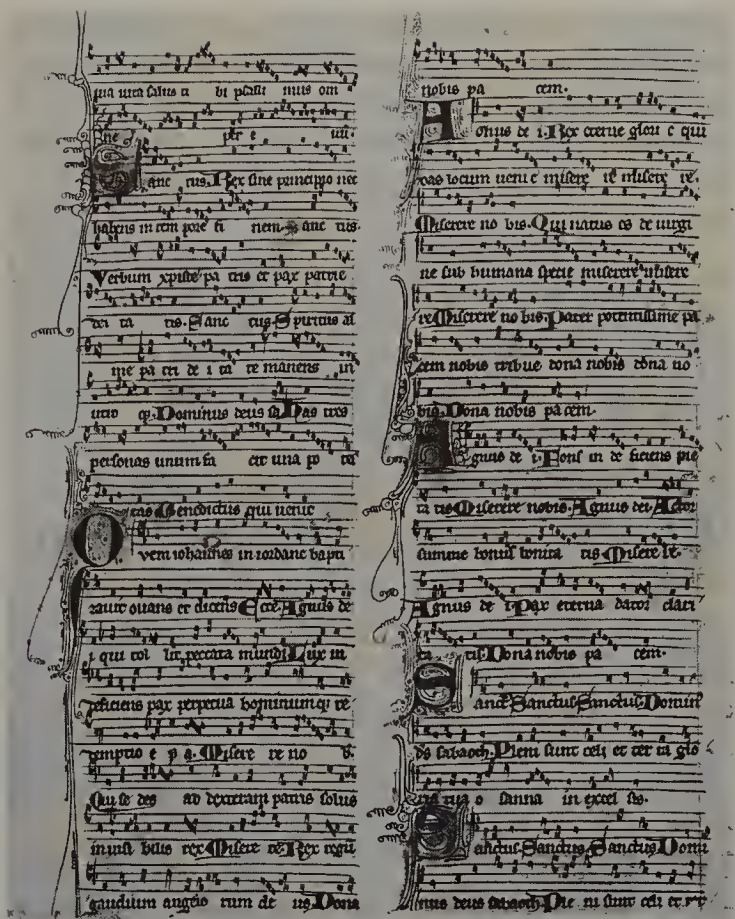 uita salus ti bi psalli mus om
ne per e ui.
Sanc tus. Rex sine principio nec
habens in tem pore fi nem Sanc tus.
Verbum xpiste pa tris et pax patrie
dei ta tis. Sanc tus. Spiritus al
me pa tri de i ta te manens in
utro q. Dominus deus sa. Das tres
personas unum fa cit una po
tas Benedictus qui uenit
Quem iohannes in iordane bapti
zauit ouans et dicens Ecce. Agnus de
i qui tol lit peccata mundi Lux in
deficiens pax perpetua hominum q re
emptio e p q. Misere re no b.
Qui se des ad dexteram patris solus
inuisi bilis rex Misere re Rex regum
gaudium angelo rum de us Dona
nobis pa cem.
Agnus de i. Rex eterne glori e qui
locum ueni e misere re misere re.
Miserere no bis. Qui natus es de uirgi
ne sub humana specie miserere misere
re Miserere no bis. Pater potentissime pa
cem nobis tribue dona nobis dona no
bis Dona nobis pacem.
Agnus de i. Fons in de ficiens pie
ta tis Miserere nobis. Agnus dei. Actor
summe bonus bonita tis Misere re.
Agnus de i Pax eterna dator clari
ta tis Dona nobis pa cem.
Sanct Sanctus Sanctus. Domin
ds sabaoth. Pleni sunt celi et ter ra glo
ria tua o sanna in excel sis.
Sanctus. Sanctus. Sanctus Domi
nus deus sabaoth. Ple ni sunt celi et